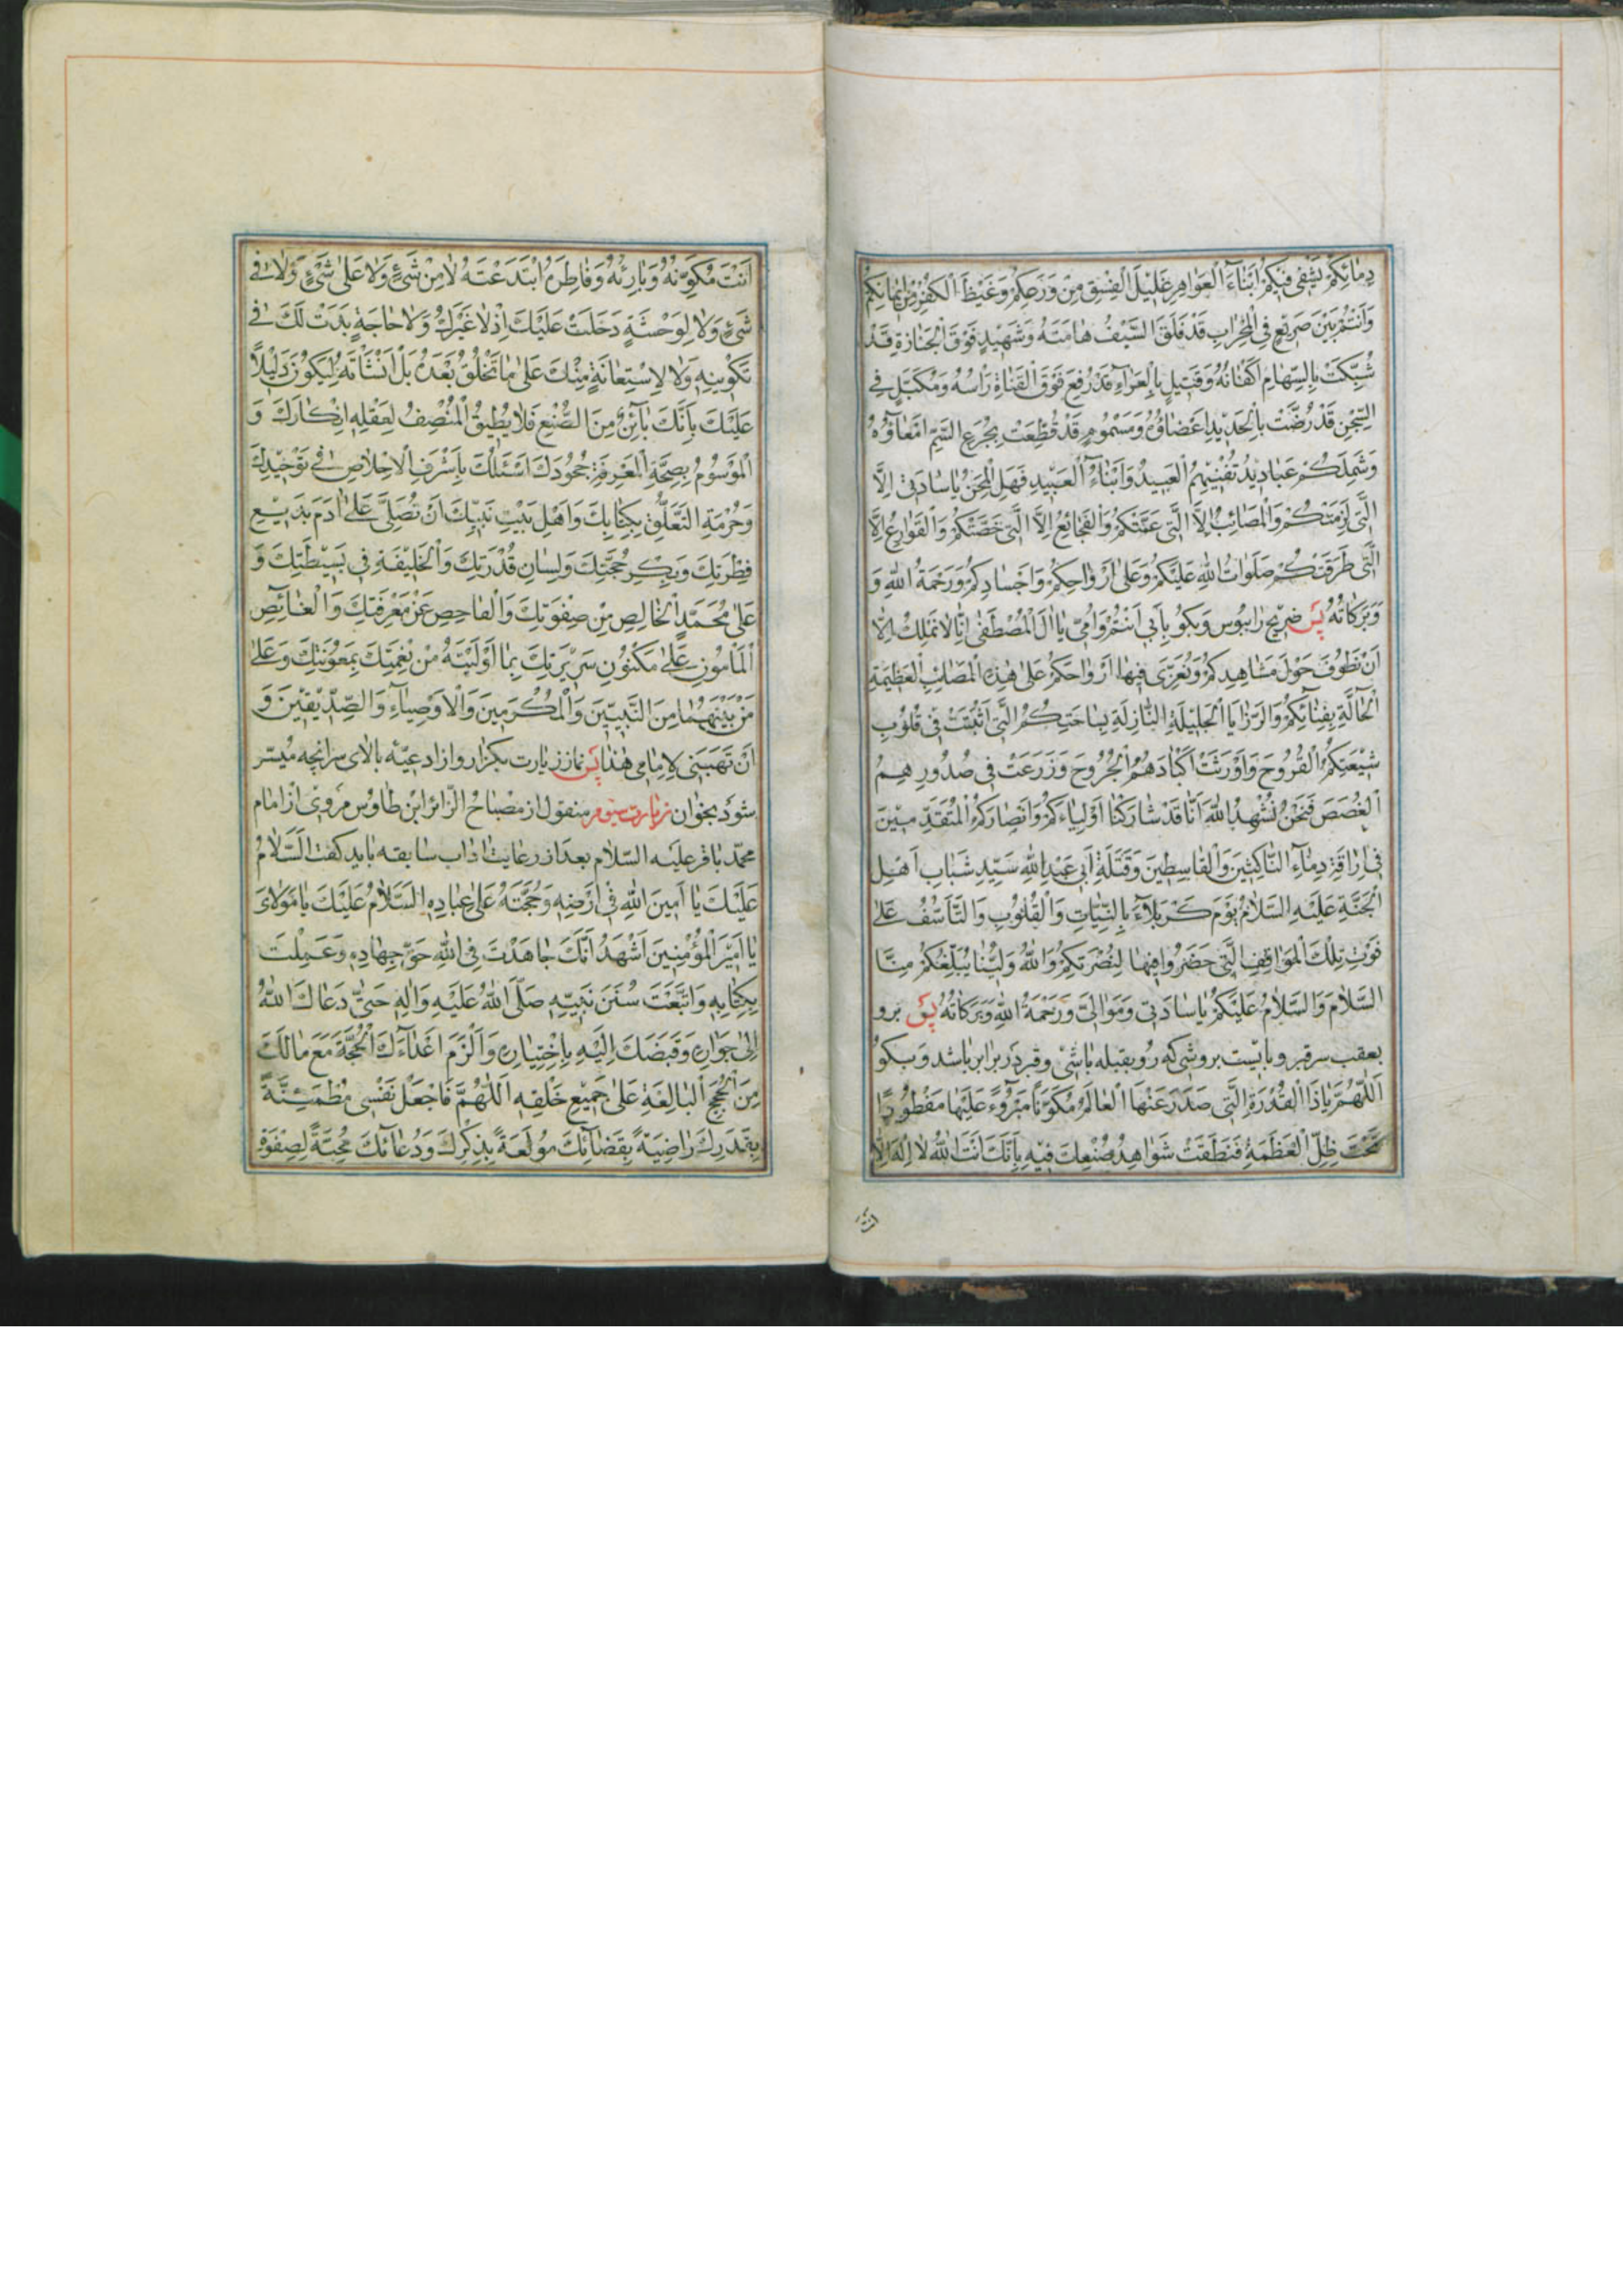 دِمَائِكُمْ يَشْفِي فِيكُمْ اَبْنَاءُ الْعَوَاهِرِ غَلِيلَ الْفِسْقِ مِنْ وَرَعِكُمْ وَغَيْظَ الْكُفْرِ مِنْ اِيمَانِكُمْ
وَاَنْتُمْ بَيْنَ صَرِيعٍ فِي الْمِحْرَابِ قَدْ فَلَقَ السَّيْفُ هَامَتَهُ وَشَهِيدٍ فَوْقَ الْجَنَازَةِ قَدْ
شُبِّكَتْ بِالسِّهَامِ اَكْفَانُهُ وَقَتِيلٍ بِالْعَرَاءِ قَدْ رُفِعَ فَوْقَ الْقَنَاةِ رَاْسُهُ وَمُكَبَّلٍ فِي
السِّجْنِ قَدْ رُضَّتْ بِالْحَدِيدِ اَعْضَاؤُهُ وَمَسْمُومٍ قَدْ قُطِّعَتْ بِجُرَعِ السَّمِّ اَمْعَاؤُهُ
وَشَمْلُكُمْ عَبَادِيدُ تُفْنِيهِمُ الْعَبِيدُ وَاَبْنَاءُ الْعَبِيدِ فَهَلِ الْمِحَنُ يَا سَادَتِي اِلَّا
الَّتِي لَزِمَتْكُمْ وَالْمَصَائِبُ اِلَّا الَّتِي عَمَّتْكُمْ وَالْفَجَائِعُ اِلَّا الَّتِي خَصَّتْكُمْ وَالْقَوَارِعُ اِلَّا
الَّتِي طَرَقَتْكُمْ صَلَوَاتُ اللهِ عَلَيْكُمْ وَعَلَى اَرْوَاحِكُمْ وَاَجْسَادِكُمْ وَرَحْمَةُ اللهِ وَ
وَبَرَكَاتُهُ پس ضريح را ببوس وبكو بِاَبِي اَنْتُمْ وَاُمِّي يَا الَ الْمُصْطَفَى اِنَّا لَا نَمْلِكُ اِلَّا
اَنْ نَطُوفَ حَوْلَ مَشَاهِدِكُمْ وَنُعَزِّيَ فِيهَا اَرْوَاحَكُمْ عَلَى هَذِهِ الْمَصَائِبِ الْعَظِيمَةِ
الْحَالَّةِ بِفِنَائِكُمْ وَالرَّزَايَا الْجَلِيلَةِ النَّازِلَةِ بِسَاحَتِكُمُ الَّتِي اَثْبَتَتْ فِي قُلُوبِ
شِيعَتِكُمُ الْقُرُوحَ وَاَوْرَثَتْ اَكْبَادَهُمُ الْجُرُوحَ وَزَرَعَتْ فِي صُدُورِهِمُ
الْغُصَصَ فَنَحْنُ نُشْهِدُ اللهَ اَنَّا قَدْ شَارَكْنَا اَوْلِيَاءَكُمْ وَاَنْصَارَكُمُ الْمُتَقَدِّمِينَ
فِي اِرَاقَةِ دِمَاءِ النَّاكِثِينَ وَالْقَاسِطِينَ وَقَتَلَةِ اَبِي عَبْدِ اللهِ سَيِّدِ شَبَابِ اَهْلِ
الْجَنَّةِ عَلَيْهِ السَّلَامُ يَوْمَ كَرْبَلَاءَ بِالنِّيَّاتِ وَالْقُلُوبِ وَالتَّاَسُّفِ عَلَى
فَوْتِ تِلْكَ الْمَوَاقِفِ الَّتِي حَضَرُوا فِيهَا لِنُصْرَتِكُمْ وَاللهُ وَلِيُّنَا يُبَلِّغُكُمْ مِنَّا
السَّلَامَ وَالسَّلَامُ عَلَيْكُمْ يَا سَادَتِي وَمَوَالِيَّ وَرَحْمَةُ اللهِ وَبَرَكَاتُهُ پس برو
بعقب سر قبر و بايست بروشى كه رو بقبله باشى و قبر در برابر باشد و بكو
اَللَّهُمَّ يَا ذَا الْقُدْرَةِ الَّتِي صَدَرَ عَنْهَا الْعَالَمُ مُكَوَّنًا مَبْرُوءً عَلَيْهَا مَفْطُورًا
تَحْتَ ظِلِّ الْعَظَمَةِ فَنَطَقَتْ شَوَاهِدُ صُنْعِكَ فِيهِ بِاَنَّكَ اَنْتَ اللهُ لَا اِلَهَ اِلَّا
انت
اَنْتَ مُكَوِّنُهُ وَبَارِئُهُ وَفَاطِرُهُ ابْتَدَعْتَهُ لَا مِنْ شَيْءٍ وَلَا عَلَى شَيْءٍ وَلَا فِي
شَيْءٍ وَلَا لِوَحْشَةٍ دَخَلَتْ عَلَيْكَ اِذْ لَا غَيْرُكَ وَلَا حَاجَةٍ بَدَتْ لَكَ فِي
تَكْوِينِهِ وَلَا لِاسْتِعَانَةٍ مِنْكَ عَلَى مَا تَخْلُقُ بَعْدَهُ بَلْ اَنْشَاْتَهُ لِيَكُونَ دَلِيلًا
عَلَيْكَ بِاَنَّكَ بَائِنٌ مِنَ الصُّنْعِ فَلَا يُطِيقُ الْمُنْصِفُ لِعَقْلِهِ اِنْكَارَكَ وَ
الْمَوْسُومُ بِصِحَّةِ الْمَعْرِفَةِ جُحُودَكَ اَسْئَلُكَ بِاَشْرَفِ الْاِخْلَاصِ فِي تَوْحِيدِكَ
وَحُرْمَةِ التَّعَلُّقِ بِكِتَابِكَ وَاَهْلِ بَيْتِ نَبِيِّكَ اَنْ تُصَلِّيَ عَلَى ادَمَ بَدِيعِ
فِطْرَتِكَ وَبِكْرِ حُجَّتِكَ وَلِسَانِ قُدْرَتِكَ وَالْخَلِيفَةِ فِي بَسِيطَتِكَ وَ
عَلَى مُحَمَّدٍ الْخَالِصِ مِنْ صَفْوَتِكَ وَالْفَاحِصِ عَنْ مَعْرِفَتِكَ وَالْغَائِصِ
الْمَاْمُونِ عَلَى مَكْنُونِ سَرِيرَتِكَ بِمَا اَوْلَيْتَهُ مِنْ نِعْمَتِكَ بِمَعُونَتِكَ وَعَلَى
مَنْ بَيْنَهُمَا مِنَ النَّبِيِّينَ وَالْمُكَرَّمِينَ وَالْاَوْصِيَاءِ وَالصِّدِّيقِينَ وَ
اَنْ تَهَبَنِي لِاِمَامِي هَذَا پس نماز زيارت بكزار و از ادعيّه بالاى سر انچه ميسّر
شود بخوان زيارت سيوم منقول از مصباح الزّائر ابن طاوس مروى از امام
محمّد باقر عليه السّلام بعد از رعايت اداب سابقه بايد كفت اَلسَّلَامُ
عَلَيْكَ يَا اَمِينَ اللهِ فِي اَرْضِهِ وَحُجَّتَهُ عَلَى عِبَادِهِ السَّلَامُ عَلَيْكَ يَا مَوْلَايَ
يَا اَمِيرَ الْمُؤْمِنِينَ اَشْهَدُ اَنَّكَ جَاهَدْتَ فِي اللهِ حَقَّ جِهَادِهِ وَعَمِلْتَ
بِكِتَابِهِ وَاتَّبَعْتَ سُنَنَ نَبِيِّهِ صَلَّى اللهُ عَلَيْهِ وَالِهِ حَتَّى دَعَاكَ اللهُ
اِلَى جِوَارِهِ وَقَبَضَكَ اِلَيْهِ بِاخْتِيَارِهِ وَاَلْزَمَ اَعْدَاءَكَ الْحُجَّةَ مَعَ مَا لَكَ
مِنَ الْحُجَجِ الْبَالِغَةِ عَلَى جَمِيعِ خَلْقِهِ اَللَّهُمَّ فَاجْعَلْ نَفْسِي مُطْمَئِنَّةً
بِقَدَرِكَ رَاضِيَةً بِقَضَائِكَ مُولَعَةً بِذِكْرِكَ وَدُعَائِكَ مُحِبَّةً لِصَفْوَةِ